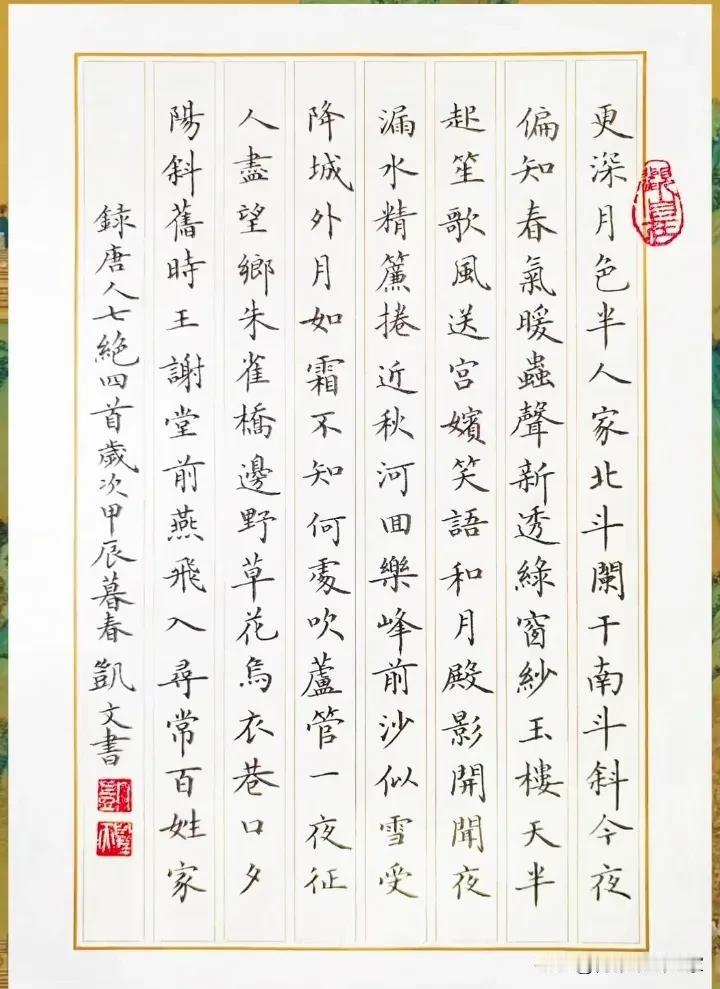 更深月色半人家北斗闌干南斗斜今夜
偏知春氣暖蟲聲新透綠窗紗玉樓天半
起笙歌風送宮嬪笑語和月殿影開聞夜
漏水精簾捲近秋河回樂峰前沙似雪受
降城外月如霜不知何處吹蘆管一夜征
人盡望鄉朱雀橋邊野草花烏衣巷口夕
陽斜舊時王謝堂前燕飛入尋常百姓家
録唐人七絶四首歲次甲辰暮春凱文書